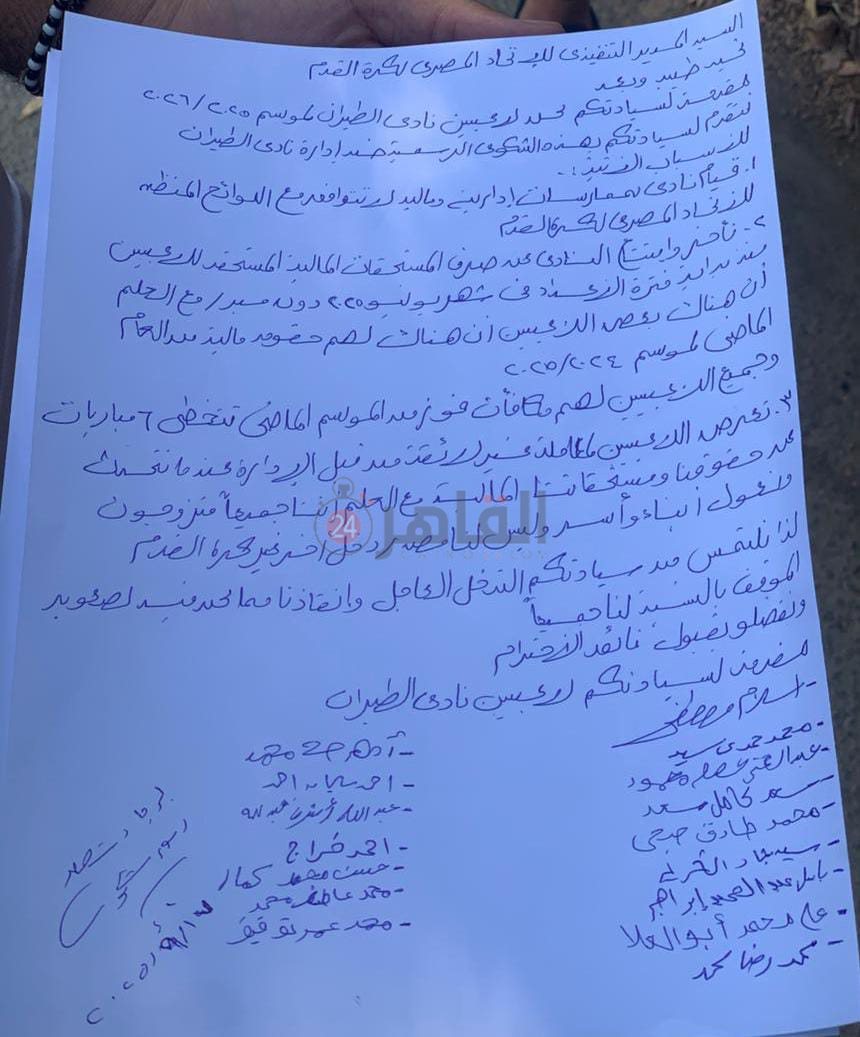 السيد المدير التنفيذى للإتحاد المصرى لكرة القدم
تحية طيبة وبعد
مقدمة لسيادتكم لاعبين نادى الطيران لموسم ٢٠٢٦/٢٠٢٥
نتقدم لسيادتكم بهذه الشكوى الرسمية ضد إدارة نادى الطيران
للأسباب الآتية :-
١- قيام نادى بممارسات إدارية ومالية لا تتوافق مع اللوائح المنظمة
للاتحاد المصرى لكرة القدم
٢- تأخر وامتناع النادى عن صرف المستحقات المالية المستحقة للاعبين
منذ بداية فترة الإعداد فى شهر يوليو ٢٠٢٥ دون مبرر مع العلم
أن هناك بعض اللاعبين أن هناك لهم حقوق مالية من العام
الماضى لموسم ٢٠٢٥/٢٠٢٤
وجميع اللاعبين لهم مكافأت فوز من الموسم الماضى تتخطى ٦ مباريات
٣- تعرض اللاعبين لمعاملة غير لائقة من قبل الإدارة عندما نتحدث
عن حقوقنا ومستحقاتنا المالية مع العلم اننا جميعاً متزوجون
ونعول أبناء وأسر وليس لنا مصدر دخل اخر غير كرة القدم
لذا نلتمس من سيادتكم التدخل العاجل وانقاذنا مما نحن فيه لصعوبة
الموقف بالنسبة لنا جميعاً
وتفضلو بقبول فائق الاحترام
مقدمة لسيادتكم لاعبين نادى الطيران
- اسلام مصطفى
- محمد حمدى سيد
- عبدالغنى محمود
- سعد كامل سعد
- محمد طارق صبحى
- سيد
- عبد الحميد إبراهيم
- على محمد أبو العلا
- محمد رضا محمد
- أدهم محمد
- احمد احمد
- عبدالله أشرف عبدالله
- احمد فراج
- حسن محمد كمال
- محمد عاطف محمد
- محمد عمر توفيق
٢٠٢٥/٩/١٣
القاهرة 24